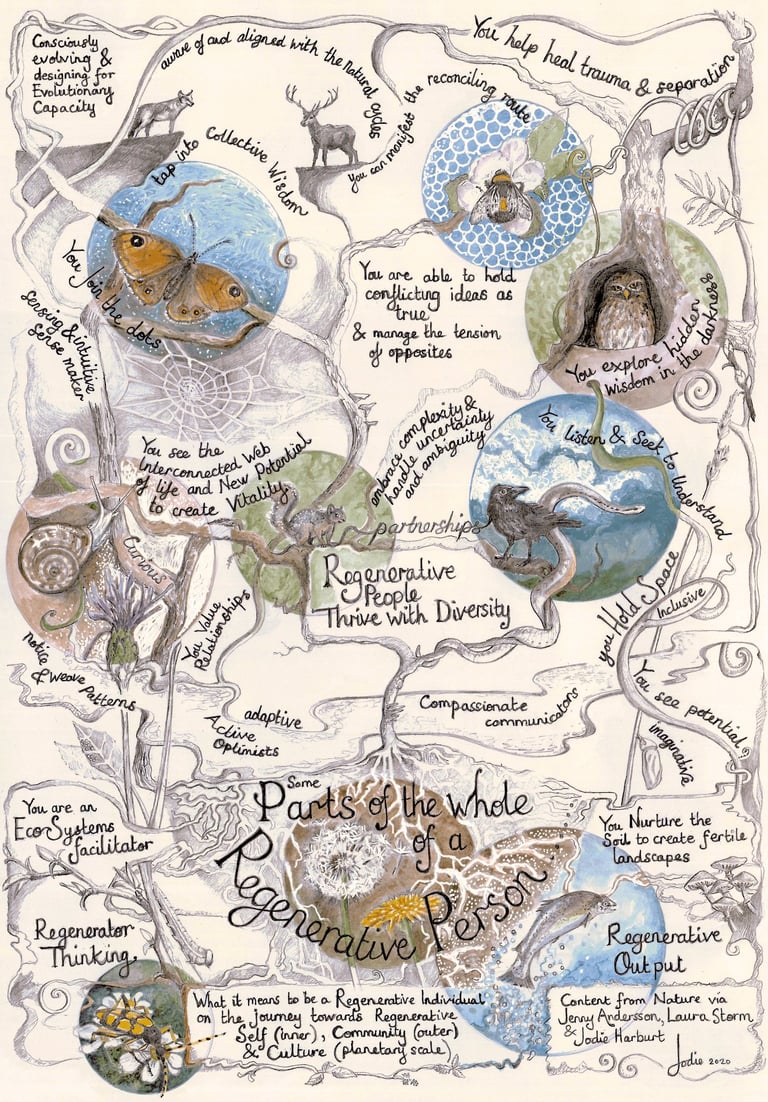 Consciously
evolving &
designing for
Evolutionary
Capacity
aware of and aligned with the natural cycles
You help heal trauma & separation
you can manifest the reconciling route
tap into Collective Wisdom
You join the dots
sensing & intuitive
sense maker
You are able to hold
conflicting ideas as
true
& manage the tension
of opposites
You explore hidden
wisdom in the darkness
embrace complexity &
handle uncertainty
and ambiguity
You listen & Seek to Understand
You see the
Interconnected Web
of life and New Potential
to create Vitality
partnerships
Curious
Regenerative
People
Thrive with Diversity
You Value
Relationships
you Hold Space
Inclusive
notice
& Weave Patterns
You see potential
imaginative
adaptive
Active
Optimists
Compassionate
communicators
You are an
EcoSystems
facilitator
Some
Parts of the whole
of a
Regenerative Person
You Nurture the
Soil to create fertile
landscapes
Regenerator
Thinking
Regenerative
Output
What it means to be a Regenerative Individual
on the journey towards Regenerative
Self (inner), Community (outer)
& Culture (planetary scale)
Content from Nature via
Jenny Andersson, Laura Storm
& Jodie Harburt
Jodie 2020